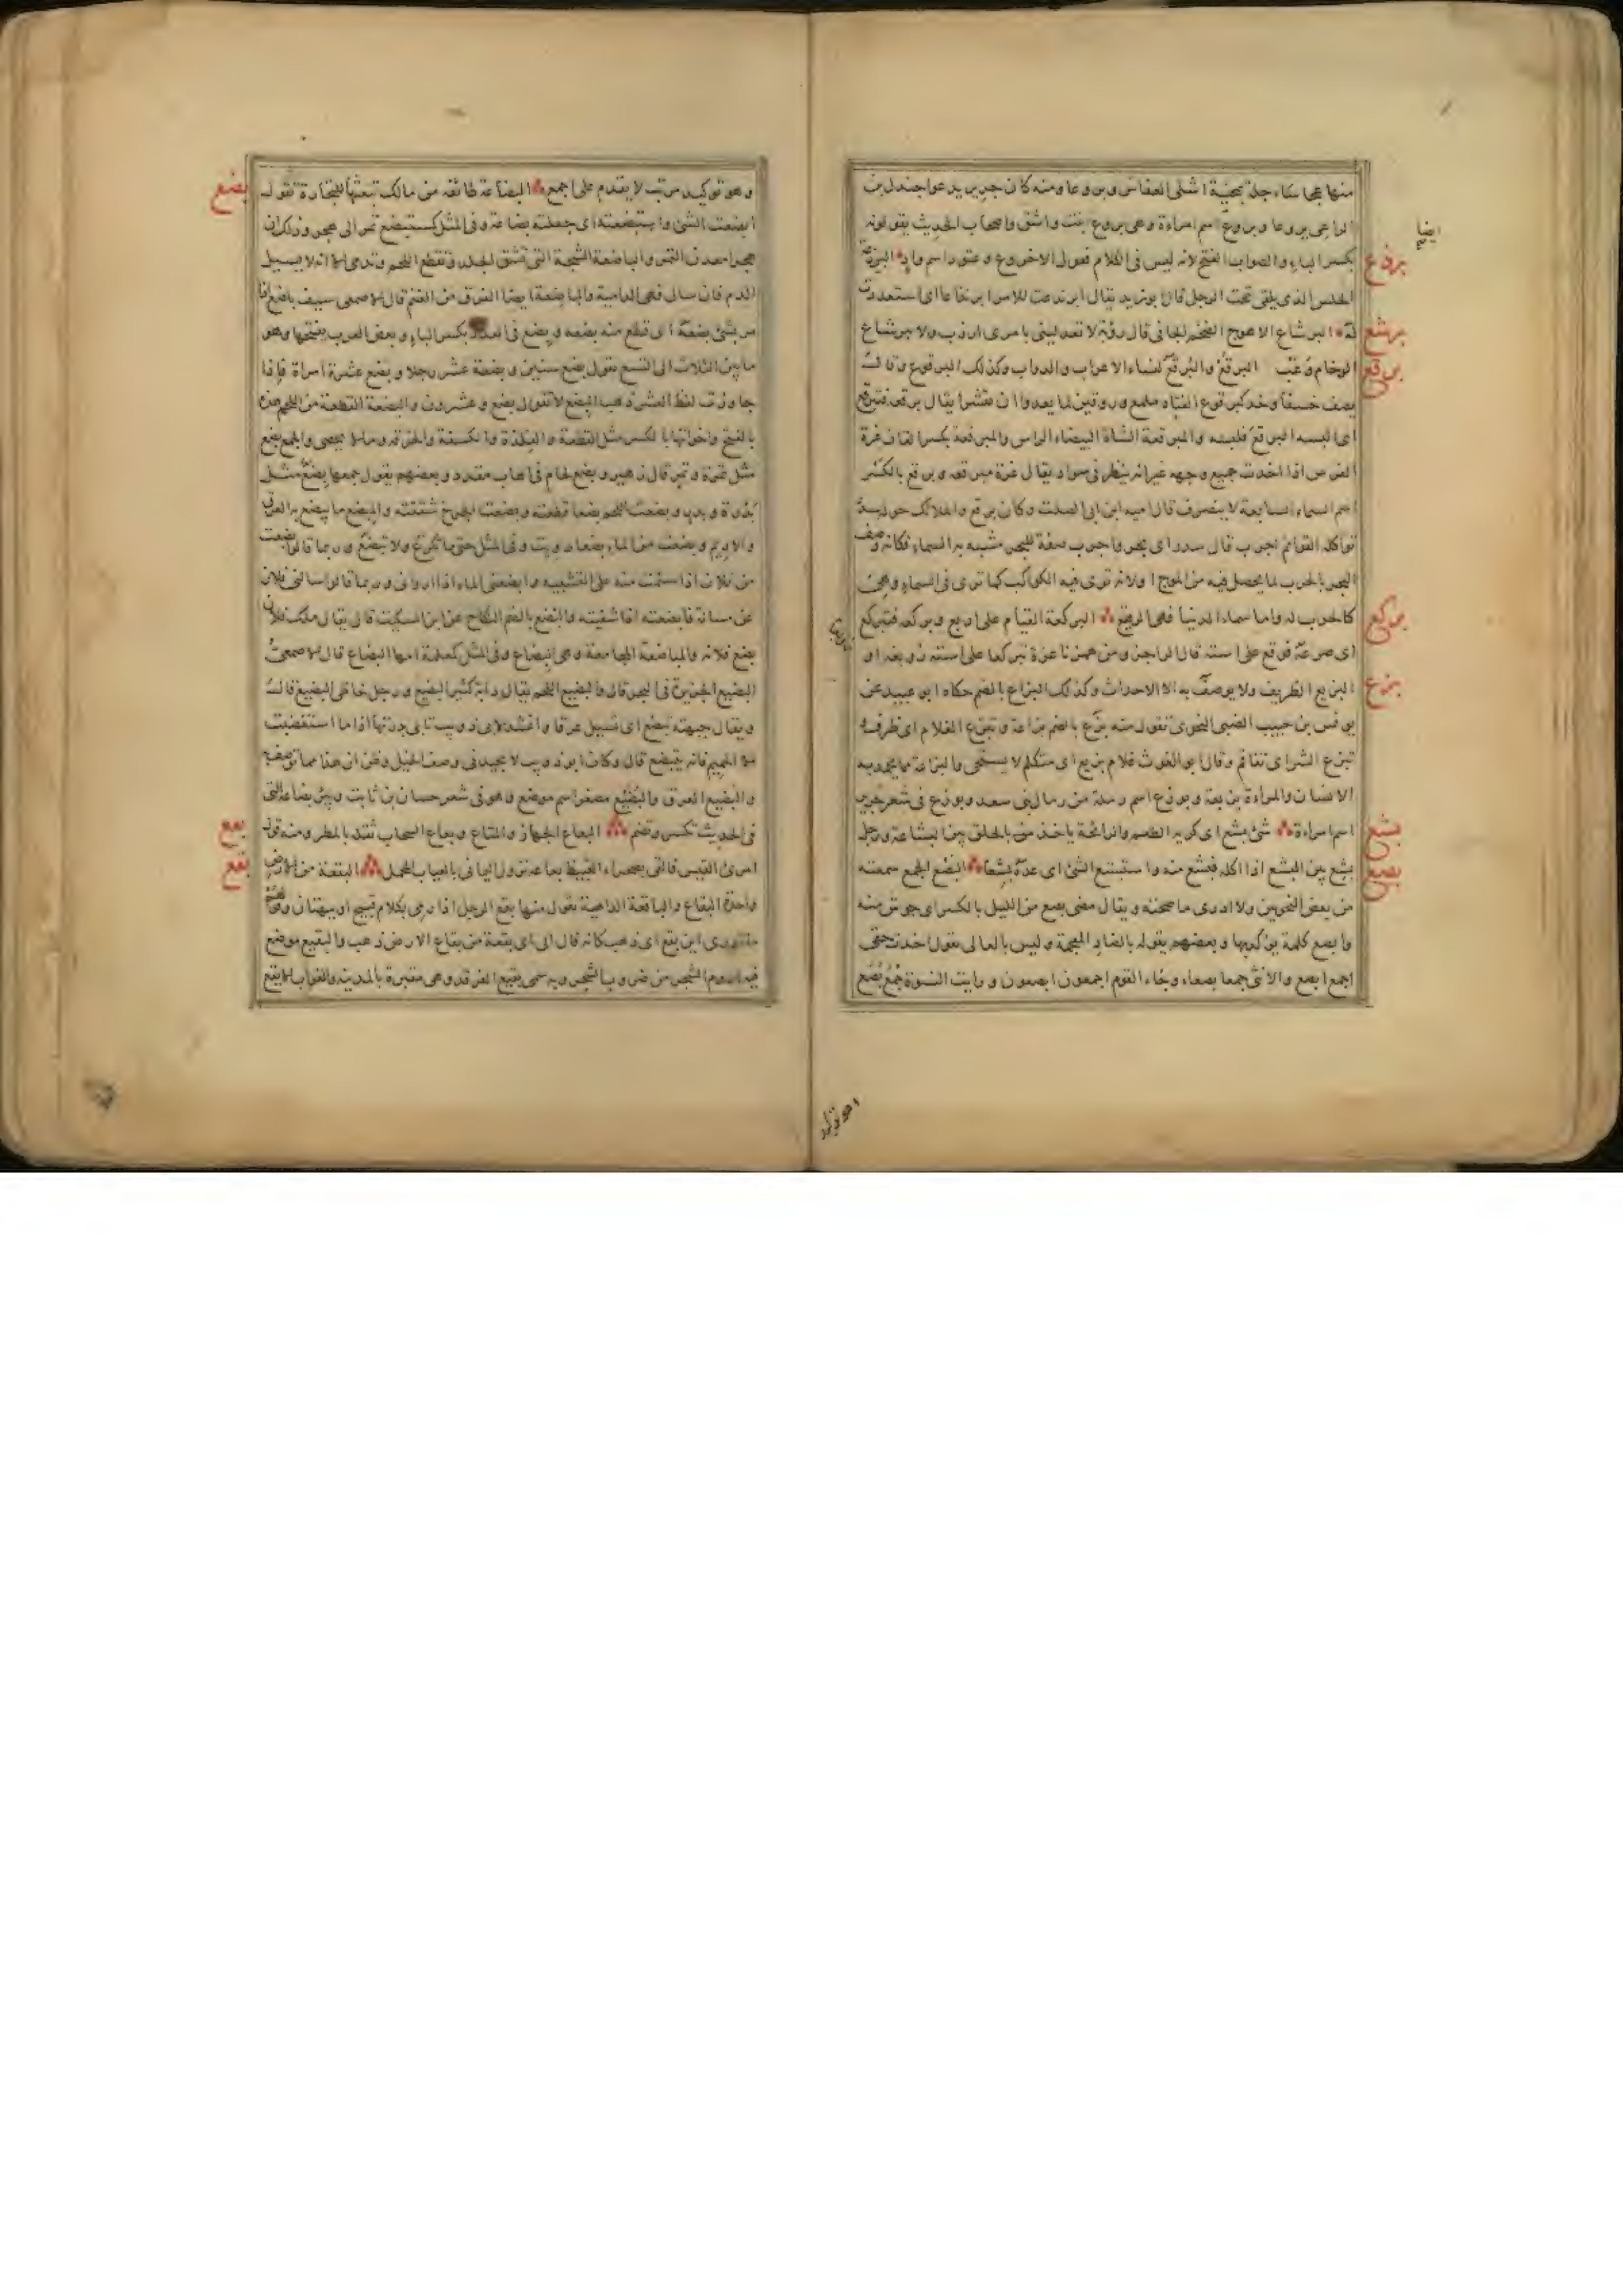 منها عجاساء جلة بمحنية اشلى العفاس وبروعا ومنه كان جرير يدعوا جندل بن
الراعى بروعا وبروع اسم امراءة وهى بروع بنت واشق واصحاب الحديث يقولونه
ايضا
بكسر الباء والصواب الفتح لانه ليس فى الكلام فعول الا خروع وعتود اسم واد البرذعة
برذع
الحلس الذى يلقى تحت الرحل قال ابو زيد يقال ابرنذعت للامر ابرنذاعا اى استعددت
له البرشاع الاهوج الضخم الجافى قال رؤبة لا تعدلينى بامرئ ارزب ولا ببرشاع
برشع
الوخام وغب البرقع والبرقع لنساء الاعراب والدواب وكذلك البرقوع وقال
برقع
يصف خشفا وخد كبرقوع الفتاة ملمع وروقين لما يعدوا ان تقشرا يقال برقعه فتبرقع
اى البسه البرقع فلبسه والمبرقعة الشاة البيضاء الراس والمبرقعة بكسر القاف غرة
الفرس اذا اخذت جميع وجهه غير انه ينظر فى سواد يقال غرة مبرقعه وبرقع بالكسر
اسم السماء السابعة لا ينصرف قال اميه ابن ابى الصلت وكان برقع والملائك حولها
تواكله القوائم اجرب قال سدر اى بحر واجرب صفة للبحر مشبه به السماء فكانه وصف
البحر بالجرب لما يحصل فيه من الموج او لانه ترى فيه الكواكب كما ترى فى السماء وهى
كالجرب له واما سماء الدنيا فهى الرقيع البركعة القيام على اربع وبركعه فتبركع
بركع
اى صرعه فوقع على استه قال الراجز ومن همزنا عزه تبركعا على استه زوبعة او
البزيع الظريف ولا يوصف به الا الاحداث وكذلك البزاع بالضم حكاه ابو عبيد عن
بزع
يونس بن حبيب الضبى النحوى تقول منه بزع بالضم بزاعة وتبزع الغلام اى ظرف
تبزع الشر اى تفاقم وقال ابو الغوث غلام بزيع اى متكلم لا يستحى والبزاعة مما يحمد به
الانسان والمراءة بزيعة وبوزع اسم رملة من رمال بنى سعد وبوزع فى شعر جرير
اسم امراءة شئ بشع اى كريه الطعم والرائحة ياخذ بالحلق بين البشاعة ورجل
بشع
بشع بين البشع اذا اكله فبشع منه واستبشع الشئ اى عده بشعا البصع الجمع سمعته
بصع
من بعض النحويين ولا ادرى ما صحته ويقال مضى بصع من الليل بالكسر اى جوش منه
وابصع كلمة يؤكد بها وبعضهم يقوله بالضاد المعجمة وليس بالعالى تقول اخذت حقى
اجمع ابصع والانثى جمعا بصعاء وجاء القوم اجمعون ابصعون ورايت النسوة جمع بصع
وهو توكيد مرتب لا يقدم على اجمع البضاعة طائفة من مالك تبعثها للتجارة تقول
بضع
ابضعت الشئ واستبضعته اى جعلته بضاعة وفى المثل كمستبضع تمر الى هجر وذلك ان
هجر معدن التمر والباضعة الشجة التى تشق الجلد وتقطع اللحم وتدمى الا انه لا يسيل
الدم فان سال فهى الدامية والباضعة ايضا الفرق من الغنم قال الاصمعى سيف باضع اذا
مر بشئ بضعه اى قطع منه بضعه وبضع فى العدد بكسر الباء وبعض العرب يفتحها وهو
ما بين الثلاث الى التسع تقول بضع سنين وبضعة عشر رجلا وبضع عشرة امراة فاذا
جاوزت لفظ العشر ذهب البضع لا تقول بضع وعشرون والبضعة القطعة من اللحم هذه
بالفتح واخواتها بالكسر مثل القطعة والفلذة والكسفة والخرقه وما لا يحصى والجمع بضع
مثل تمرة وتمر قال زهير وبضع لحام فى اهاب مقدد وبعضهم يقول جمعها بضع مثل
بدرة وبدر وبضعت اللحم بضعا قطعته وبضعت الجرح شققته والمبضع ما يبضع به العرق
والاديم وبضعت من الماء بضعا رويت وفى المثل حتى متى تكرع ولا تبضع وربما قالوا بضعت
من فلان اذا سئمت منه على التشبيه وابضعنى الماء اذا اروانى وربما قالوا سالنى فلان
عن مسالة فابضعته اذا شفيته والبضع بالضم النكاح عن ابن السكيت قال يقال ملك فلان
بضع فلانه والمباضعة المجامعة وهى البضاع وفى المثل كمعلمة امها البضاع قال الاصمعى
البضيع الجزيرة فى البحر قال والبضيع اللحم يقال دابة كثير البضيع ورجل خاظى البضيع قال
ويقال جبهته تبضع اى تسيل عرقا وانشد لابى ذويب تابى بدرتها اذا ما استغضبت
الا الحميم فانه يتبضع قال وكان ابو ذويب لا يجيد فى وصف الخيل وظن ان هذا مما توصف به
والبضيع العرق والبضيع مصغر اسم موضع وهو فى شعر حسان بن ثابت وبئر بضاعة التى
فى الحديث تكسر وتضم البعاع الجهاز والمتاع وبعاع السحاب ثقله بالمطر ومنه قول
بعع
امرئ القيس فالقى بصحراء الغبيط بعاعه نزول اليمانى بالعياب المحمل البقعة من الارض
بقع
واحدة البقاع والباقعة الداهية تقول منها بقع الرجل اذا رمى بكلام قبيح او ببهتان وقولهم
ما ادرى اين بقع اى ذهب كانه قال الى اى بقعة من بقاع الارض ذهب والبقيع موضع
فيه اروم الشجر من ضروب الشجر وبه سمى بقيع الغرقد وهى مقبرة بالمدينه والغراب الابقع